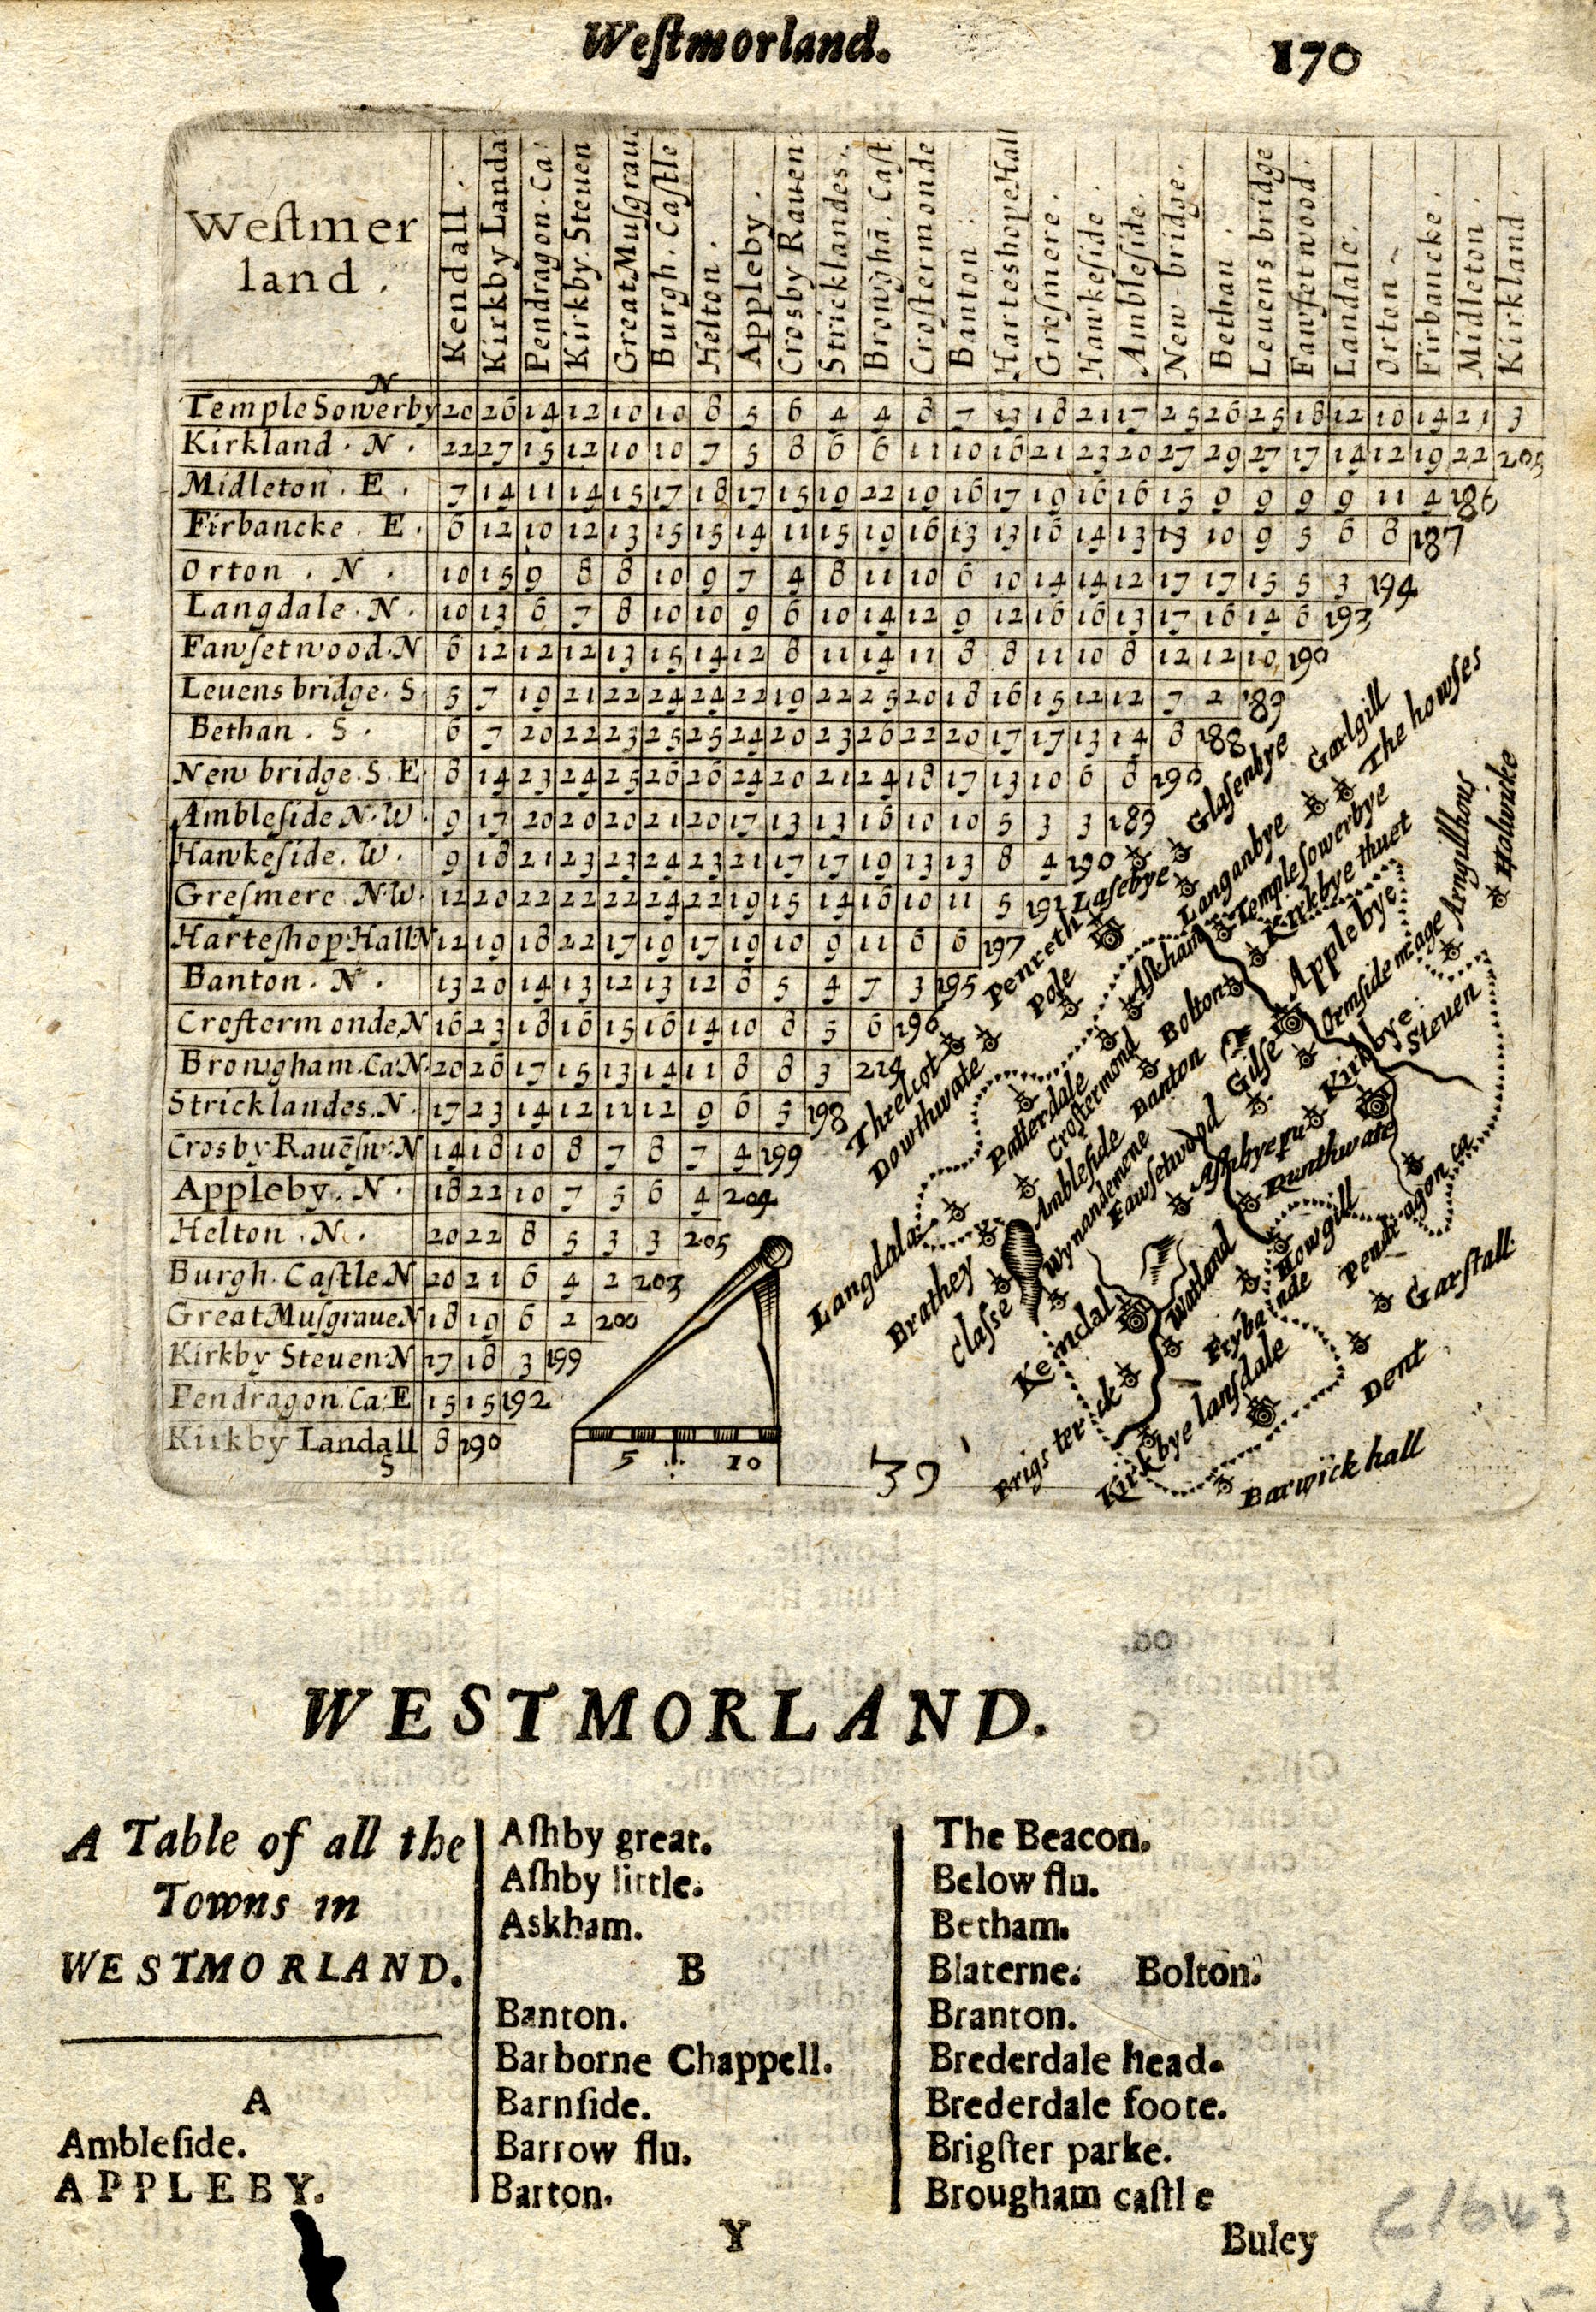 Weſtmorland.
170
Weſtmer
land.
Kendall.
Kirkby Landa
Pendragon. Ca
Kirkby. Steuen
Great Muſgraue
Burgh. Caſtle
Helton.
Appleby.
Crosby Rauen:
Stricklandes.
Browghā. Caſt
Croſtermonde
Banton.
Harteshope Hall
Greſmere.
Hawkeſide.
Ambleſide.
New-bridge.
Bethan.
Leuens bridge
Fawſetwood.
Landale.
Orton.
Firbancke.
Midleton.
Kirkland.
Temple Sowerby N 20 26 14 12 10 10 8 5 6 4 4 8 7 13 18 21 17 25 26 25 18 12 10 14 21 3
Kirkland. N. 22 27 15 12 10 10 7 5 8 6 6 11 10 16 21 23 20 27 29 27 17 14 12 19 22 205
Midleton. E. 7 14 11 14 15 17 18 17 15 19 22 19 16 17 19 16 16 15 9 9 9 9 11 4 186
Firbancke. E. 6 12 10 12 13 15 15 14 11 15 19 16 13 13 16 14 13 13 10 9 5 6 8 187
Orton. N. 10 15 9 8 8 10 9 7 4 8 11 10 6 10 14 14 12 17 17 15 5 3 194
Langdale. N. 10 13 6 7 8 10 10 9 6 10 14 12 9 12 16 16 13 17 16 14 6 193
Fawſetwood. N 6 12 12 12 13 15 14 12 8 11 14 11 8 8 11 10 8 12 12 10 190
Leuens bridge. S. 5 7 19 21 22 24 24 22 19 22 25 20 18 16 15 12 12 7 2 189
Bethan. S. 6 7 20 22 23 25 25 24 20 23 26 22 20 17 17 13 14 8 188
New bridge. S. E. 8 14 23 24 25 26 26 24 20 21 24 18 17 13 10 6 8 190
Ambleſide N. W. 9 17 20 20 20 21 20 17 13 13 16 10 10 5 3 3 189
Hawkeſide. W. 9 18 21 23 23 24 23 21 17 17 19 13 13 8 4 190
Greſmere. N W. 12 20 22 22 22 24 22 19 15 14 16 10 11 5 191
Harteſhop Hall N 12 19 18 22 17 19 17 19 10 9 11 6 6 197
Banton. N. 13 20 14 13 12 13 12 8 5 4 7 3 195
Croſtermonde, N 16 23 18 16 15 16 14 10 8 5 6 196
Browgham. Ca: N. 20 26 17 15 13 14 11 8 8 3 214
Stricklandes. N. 17 23 14 12 11 12 9 6 5 198
Crosby Rauēſw: N 14 18 10 8 7 8 7 4 199
Appleby. N. 18 22 10 7 5 6 4 204
Helton. N. 20 22 8 5 3 3 205
Burgh. Caſtle. N 20 21 6 4 2 203
Great Muſgraue N 18 19 6 2 200
Kirkby Steuen: N 17 18 3 199
Pendragon. Ca: E 15 15 192
Kirkby Landall S 8 190
5 10
39
Garlgill
The howſes
Glaſenbye
Laſebye
Langanbye
Temple ſowerbye
Kirkbye thuet
Arngillhous
Holwicke
Penreth
Pole
Aſkham
Applebye
Ormſide
Bolton
Kirkbye:
Steuen
Threlcot
Dowthwate
Patterdale
Croſtermond
Banton
Gilſe
Ambleſide
Wynandemene
Fawſetwood
Runthwate
Langdala
Brathey
Claſſe
Kendal
Watland
Howgill
Pendragon ca
Garſtall
Frybande
Dent
Brigsterick
Kirkbye lanſdale
Barwick hall
WESTMORLAND.
A Table of all the
Towns in
WESTMORLAND.
A
Ambleſide.
APPLEBY.
Aſhby great.
Aſhby little.
Askham.
B
Banton.
Barborne Chappell.
Barnſide.
Barrow flu.
Barton.
The Beacon.
Below flu.
Betham.
Blaterne. Bolton.
Branton.
Brederdale head.
Brederdale foote.
Brigſter parke.
Brougham caſtle
Y
Buley